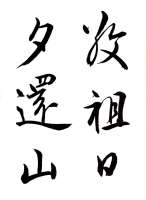 祖日
夕還山